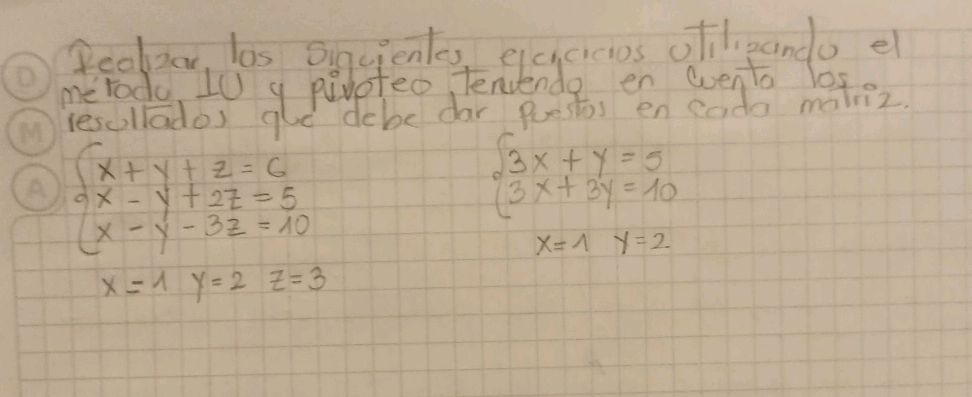 Realizar los siguientes ejercicios utilizando el
método LU y pivoteo, teniendo en cuenta los
resultados que debe dar puestos en cada matriz.
D
M
A
x + y + z = 6
x - y + 2z = 5
x - y - 3z = 10
x = 1 y = 2 z = 3
3x + y = 5
3x + 3y = 10
x = 1 y = 2